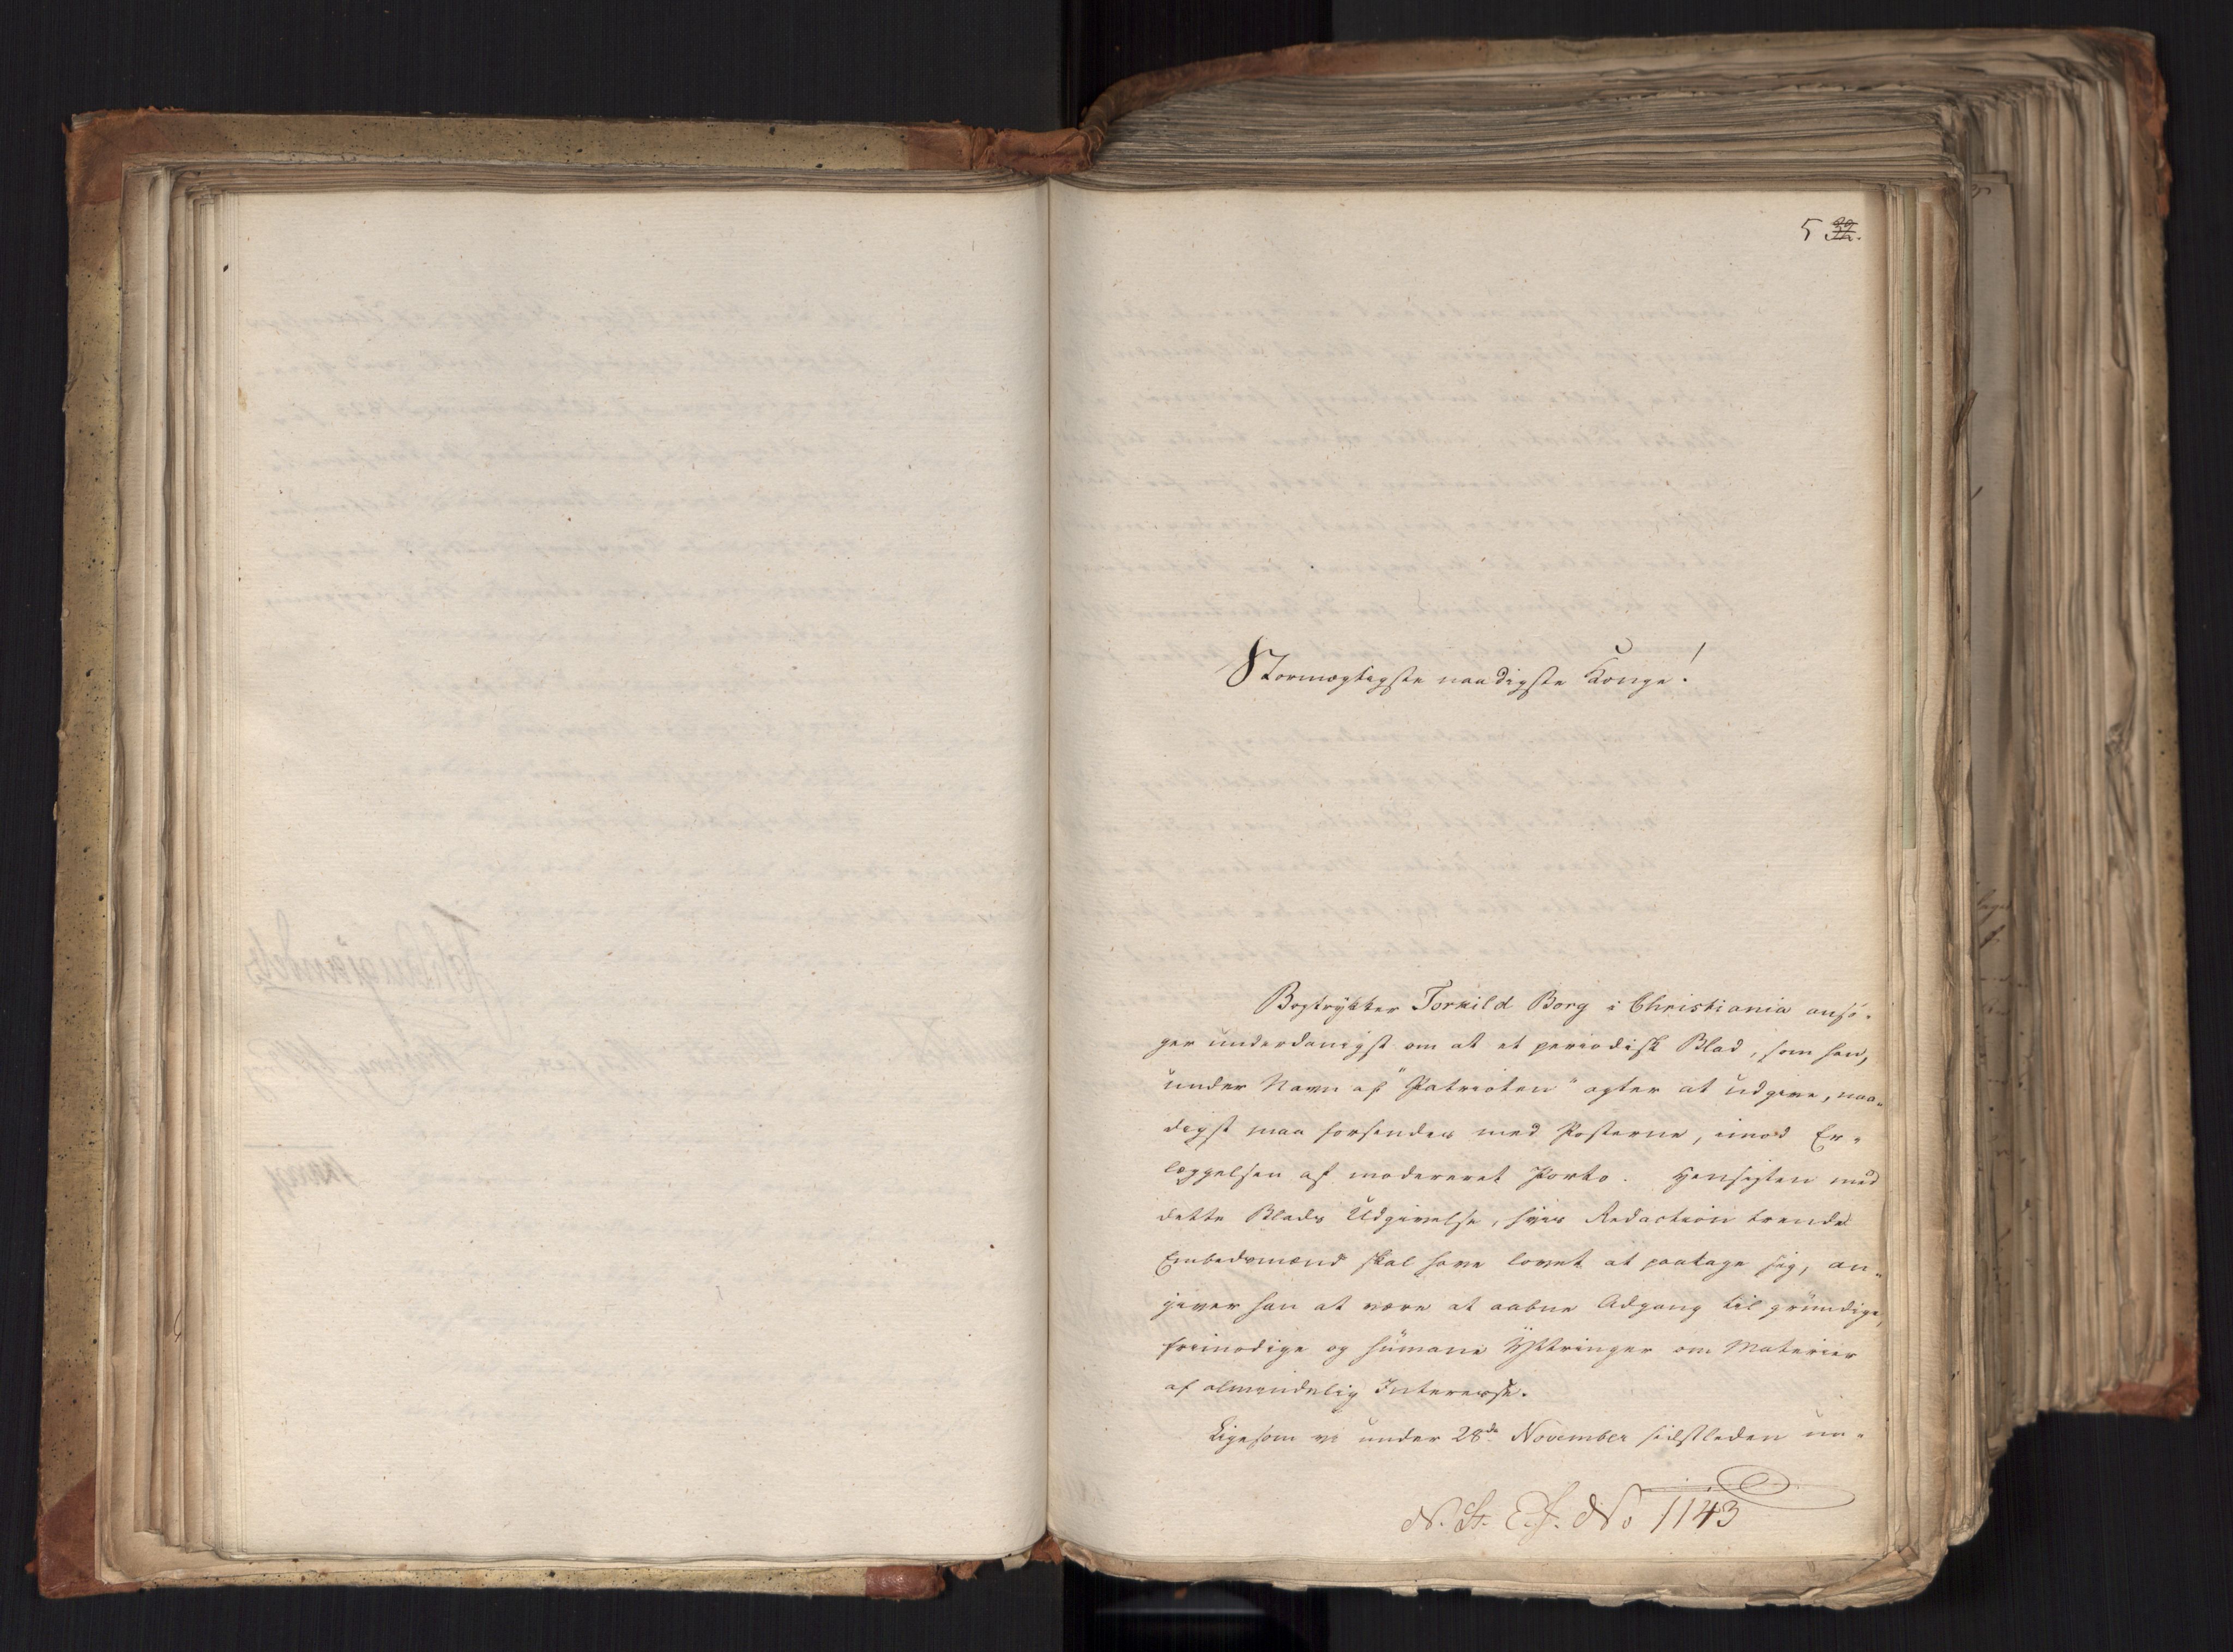 5
Stormægtigste naadigste Konge!
Bogtrykker Torkild Borg i Christiania ansø-
ger underdanigst om at et periodisk Blad, som han,
under Navn af "Patrioten" agter at udgive, naa-
digst maa forsendes med Posterne, imod Er-
læggelsen af modereret Porto. Hensigten med
dette Blads Udgivelse, hvis Redaction trende
Embedsmænd skal have lovet at paatage sig, an-
giver han at være at aabne Adgang til grundige,
frimodige og humane Yttringer om Materier
af almindelig Interesse.
Ligesom vi under 28de November sidstleden un-
N. St. E. J. No 1143